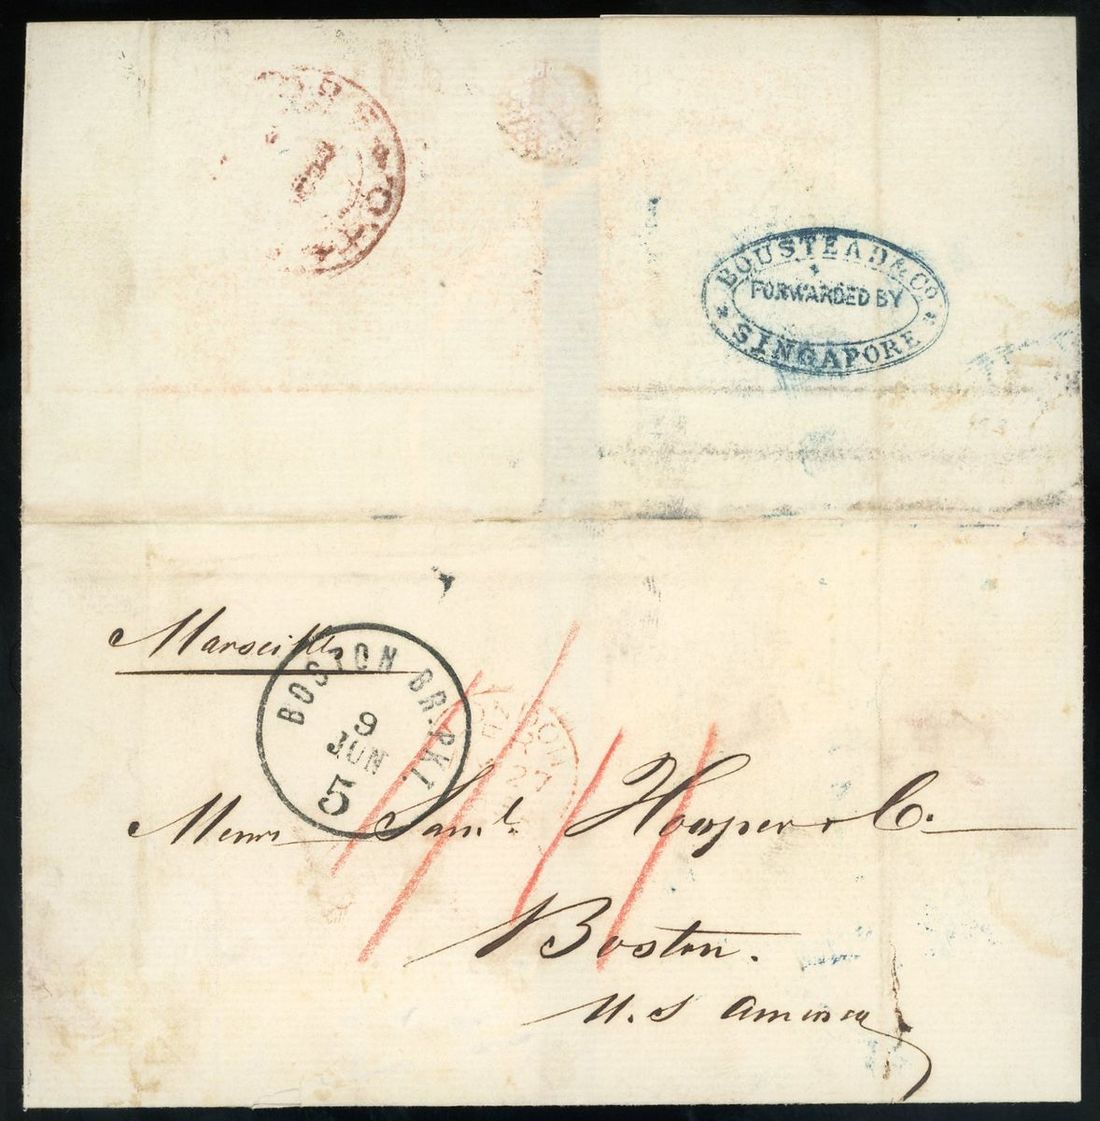 BOUSTEAD & Co
FORWARDED BY
SINGAPORE
Marseille
BOSTON BR. PKT.
9
JUN
5
27
Messrs Saml. Hooper & Co.
Boston.
U. S America